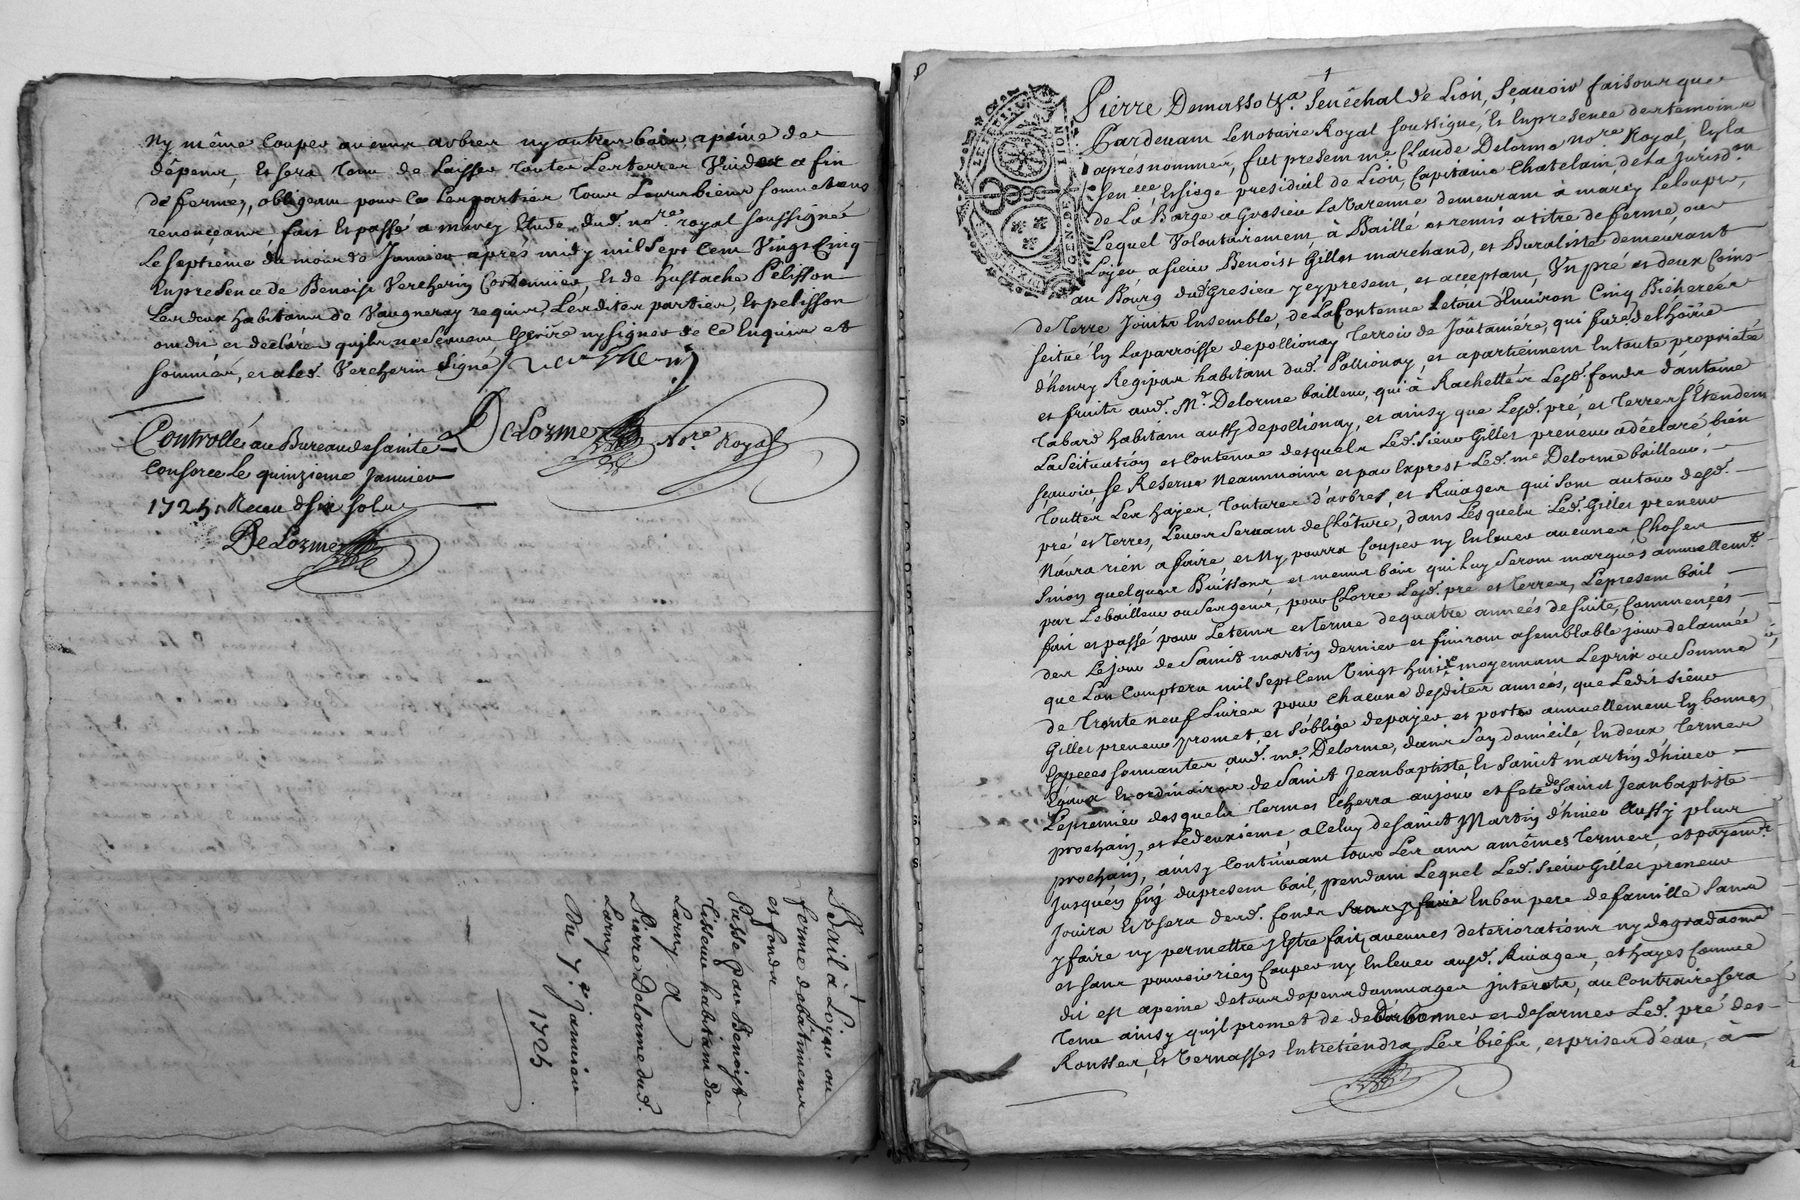 ny même couper aucuns arbres ny autres bois apeine de
dépens, et sera tenu de laisser toutes les terres vuides a fin
de ferme, obligeant pour ce les parties tous leurs biens soumetans
renonçant fait et passé a
le septieme du mois de Janvier après midy mil sept cent vingt cinq
en presence de Benoist Vercherin Cordonnier, et de Hustache Pelisson
les deux habitans de Vaugneray requis, lesdites parties, et pelisson
ont dit et declarés quils ne scavent écrire ny signer de ce enquis et
sommés, et a led. Vercherin signé
Delorme Nore Royal
Controllé au Bureau de Sainte
Consorce le quinzieme Janvier
1725. Receu dix sols
Delorme
Bail à Loyer ou
ferme de batimens
et fonds
Passé par Benoist
Tisseur habitant de
Larny A
Pierre Delorme dud.
Larny
Du 7e Janvier
1725
GEN. DE LION
Pierre Demasso &a. Senéchal de Lion, Sçavoir faisons que
Pardevant le Notaire Royal soussigné, et en presence des temoins
après nommés, fut present me Claude Delorme nore Royal, en la
Senceé et siege presidial de Lion, Capitaine Chatelain, de la Jurisdon
de La Barge a Gresieu La Varenne demeurant à marcy Leloup,
Lequel volontairement, à Baillé et remis a titre de ferme, ou
Loyer, a sieur Benoist Gillet marchand, et Buraliste demeurant
au Bourg dud Gresieu y present, et acceptant, Un pré et deux Coins
de Terre Joints Ensemble, de La Contenue le tout d'Environ Cinq Bicherées
scitué En Laparroisse de pollionay Terroir de Joûtaniére, qui furent de l'hoirie
d'henry Regipas habitant dud. Pollionay, et apartiennent en toute proprieté
et fruits aud. Me. Delorme bailleur, qui à Rachettés lesd. fonds d'antoine
Tabard habitant aussy de pollionay, et ainsy que lesd. pré, et Terres S'Etendent
La scituation et contenue desquels led. Sieur Gillet preneur a déclaré bien
sçavoir, se Reserve neanmoins, et par Exprest led. me Delorme bailleur,
Touttes les hayes, Tontures d'arbres, et Rivages qui sont autour desd.
pré et Terres, leurs servant de Clôture, dans Lesquels led. Gillet preneur
n'aura rien a faire, et ny pourra Couper ny enlever aucunes Choses
Sinon quelques Buissons, et menus bois qui luy seront marqués annuellemt.
par Le bailleur ou ses gens, pour Clorre lesd. pré et Terres, Le present bail
fait et passé pour Le tems et terme de quatre années de suite, Commencées
des le jour de Saint martin dernier et finiront a semblable jour de l'année
que Lon Comptera mil sept cent Vingt huit, moyennant Le prix ou Somme
de Trente neuf Livres pour chacune desdites années, que Ledit Sieur
Gillet preneur promet, et s'oblige de payer et porter annuellement En bonnes
Especes sonnantes, aud. me. Delorme, dans Son domicile En deux Termes
Egaux Et ordinaires de Saint Jean baptiste, et Saint martin d'hiver
Le premier desquels Termes Echerra au jour et fete de Saint Jean baptiste
prochain, et Le deuxieme, a Celuy de Saint Martin d'hiver Aussy plus
prochain, ainsy continuant tous les ans a mêmes Termes, et payemts
Jusques fin du present bail, pendant Lequel led. Sieur Gillet preneur
Jouira et Usera desd. fonds en bon pere de famille sans
y faire ny permettre y Estre fait, aucunes deteriorations ny degradaons
et sans pouvoir rien Couper ny Enlever auxd. Rivages, et hayes comme
dit est apeine de tous depens dommages interets, au contraire sera
tenu ainsy quil promet de et desarmer led. pré des
Ronsses, et Vernasses Entretiendra Les biefs, et prises d'eau, à